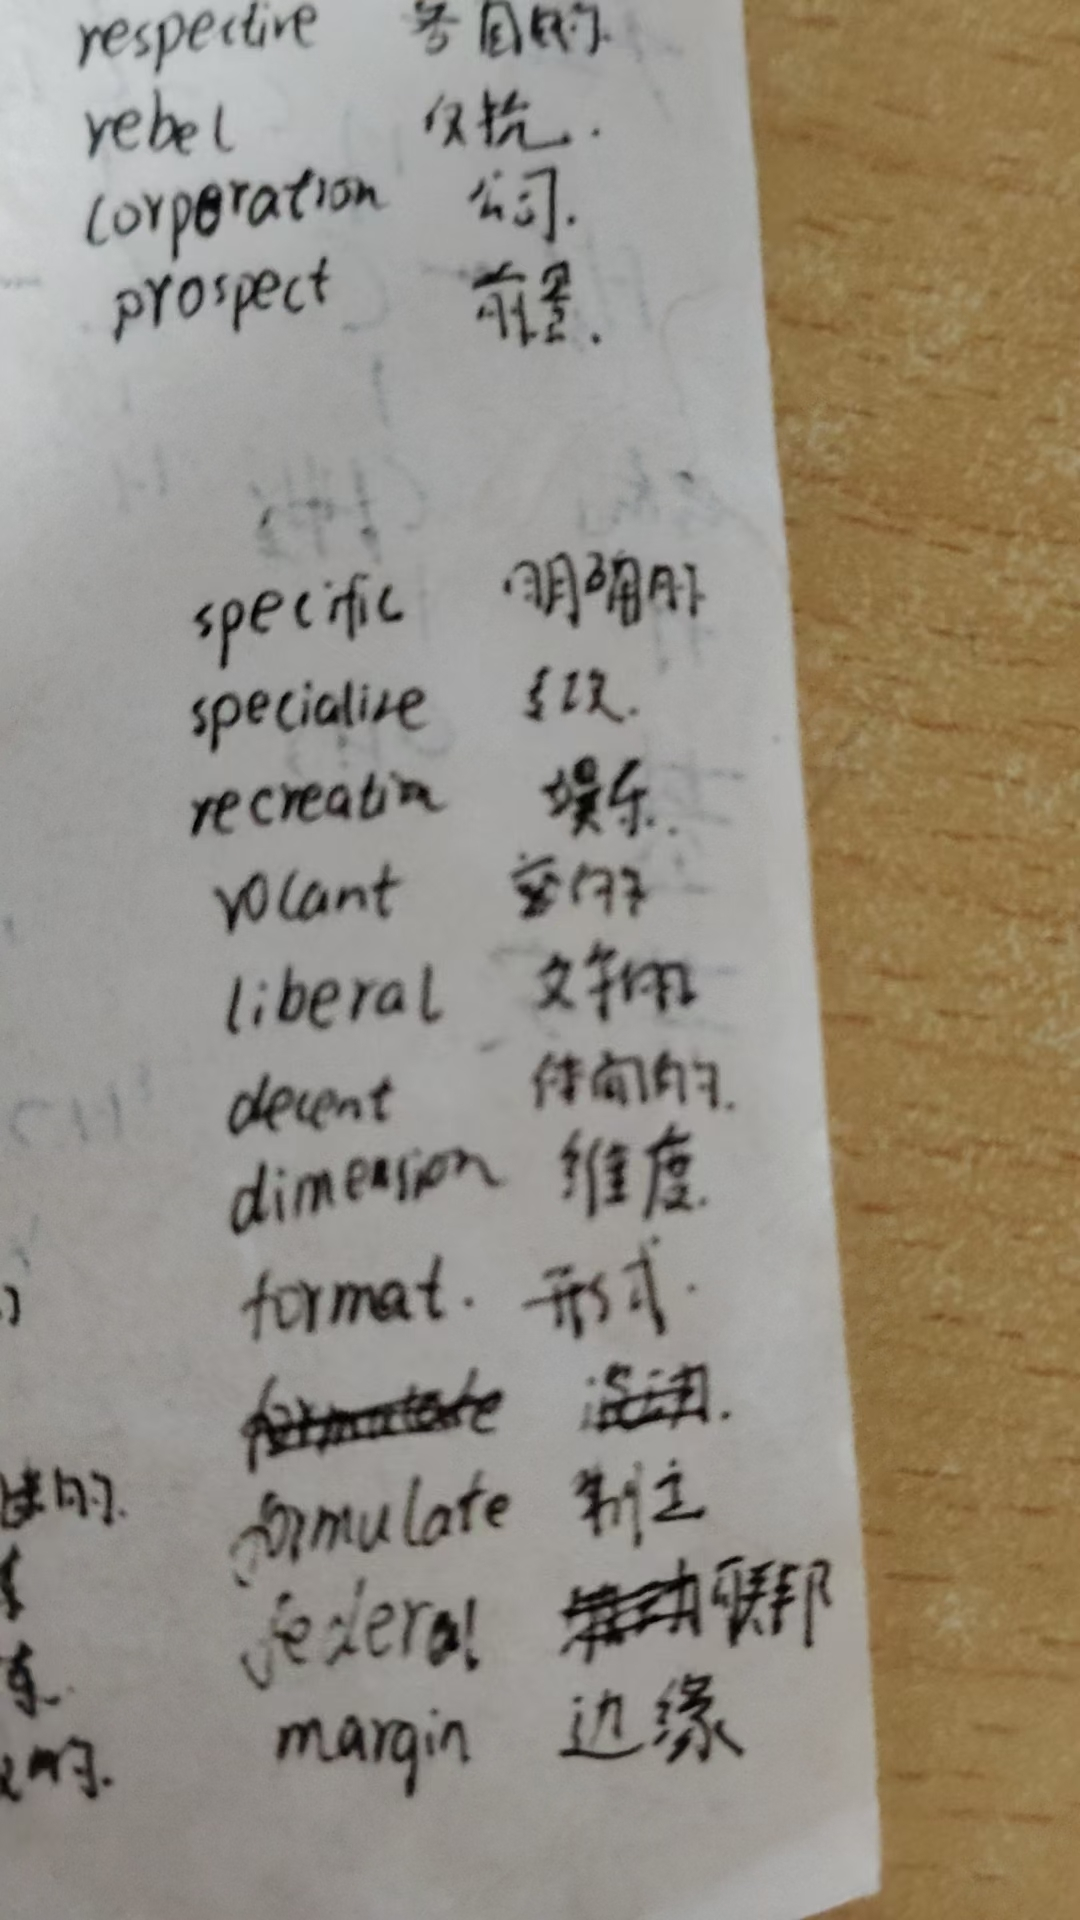 respective 各自的.
rebel 反抗.
corporation 公司.
prospect 前景.
specific 明确的
specialize
recreation 娱乐.
vocant
liberal
decent 体面的.
dimension 维度.
format. 形式.
formulate 制定
federal 联邦
margin 边缘